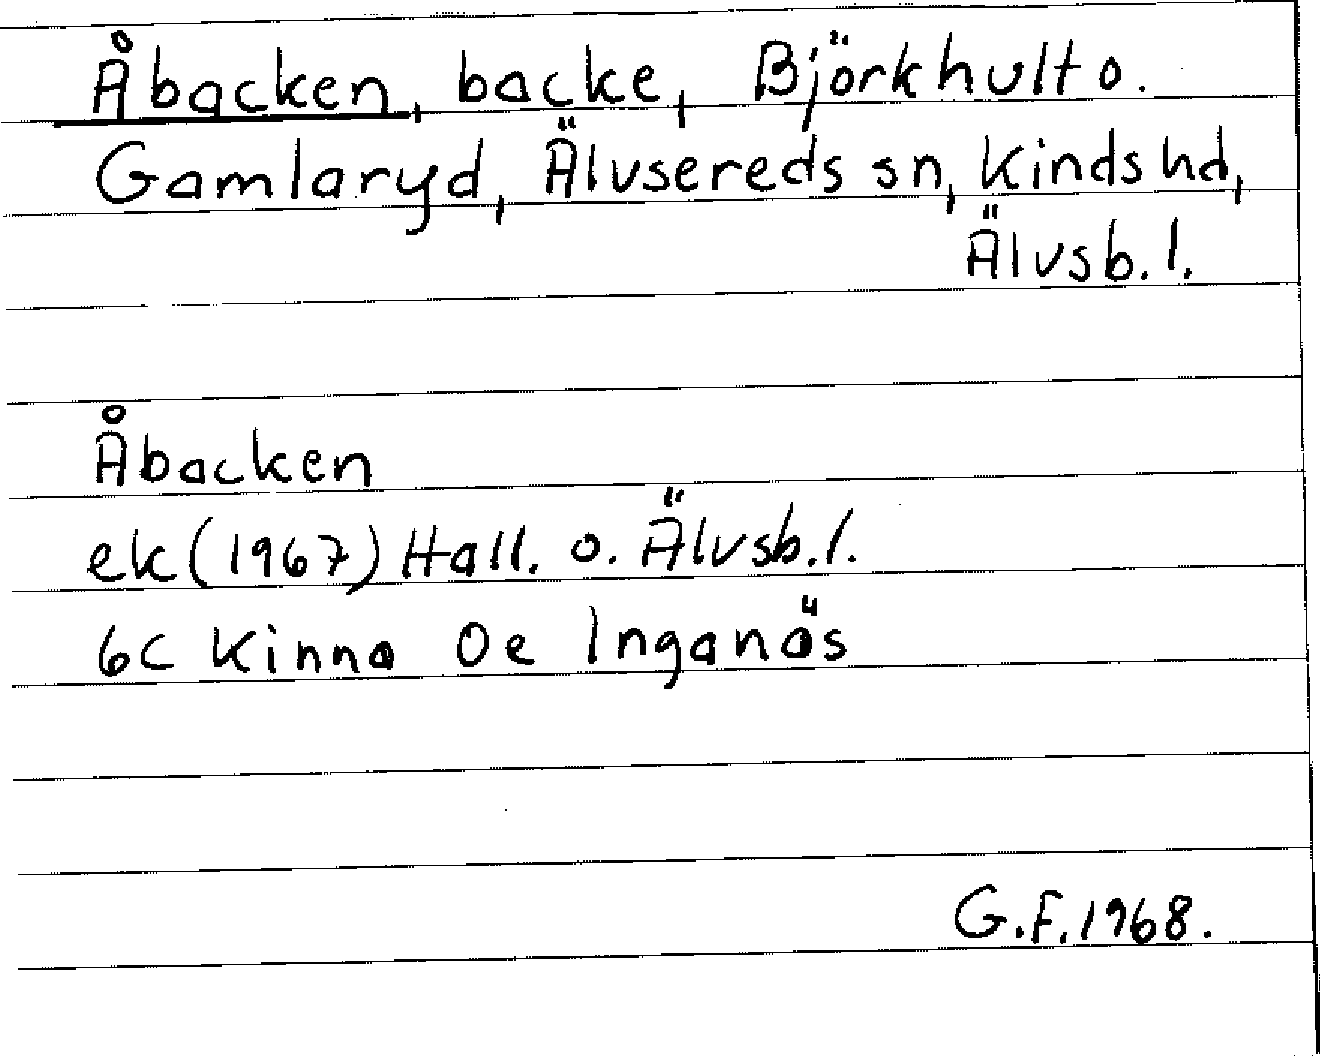 Åbacken, backe, Björkhult o.
Gamlaryd, Älvsereds sn, Kinds hd,
Älvsb. l.
Åbacken
ek (1967) Hall. o. Älvsb. l.
6C Kinna 0e Inganäs
G.F. 1968.